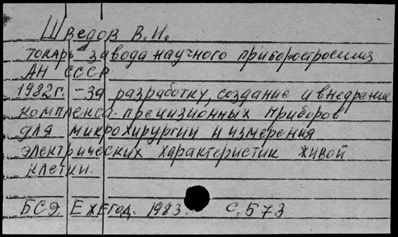 Шведов В.И.
токарь завода научного приборостроения
АН СССР
1982г. - за разработку, создание и внедрение
комплекса прецизионных приборов
для микрохирургии и измерения
электрических характеристик живой
клетки.
БСЭ. Ежегод. 1983. с. 573